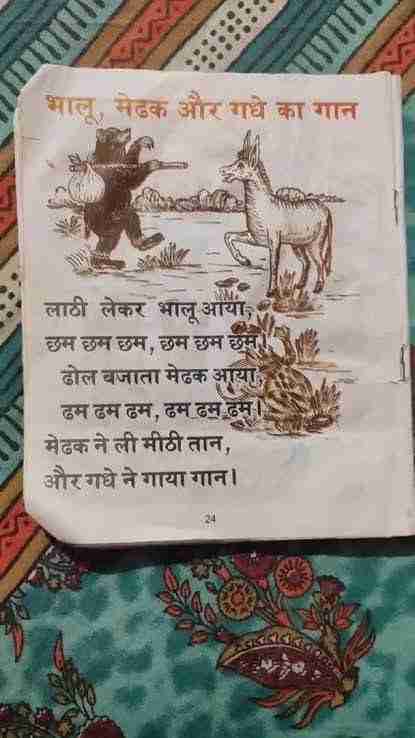 भालू, मेढक और गधे का गान
लाठी लेकर भालू आया,
छम छम छम, छम छम छम।
ढोल बजाता मेढक आया,
ढम ढम ढम, ढम ढम ढम।
मेढक ने ली मीठी तान,
और गधे ने गाया गान।
24